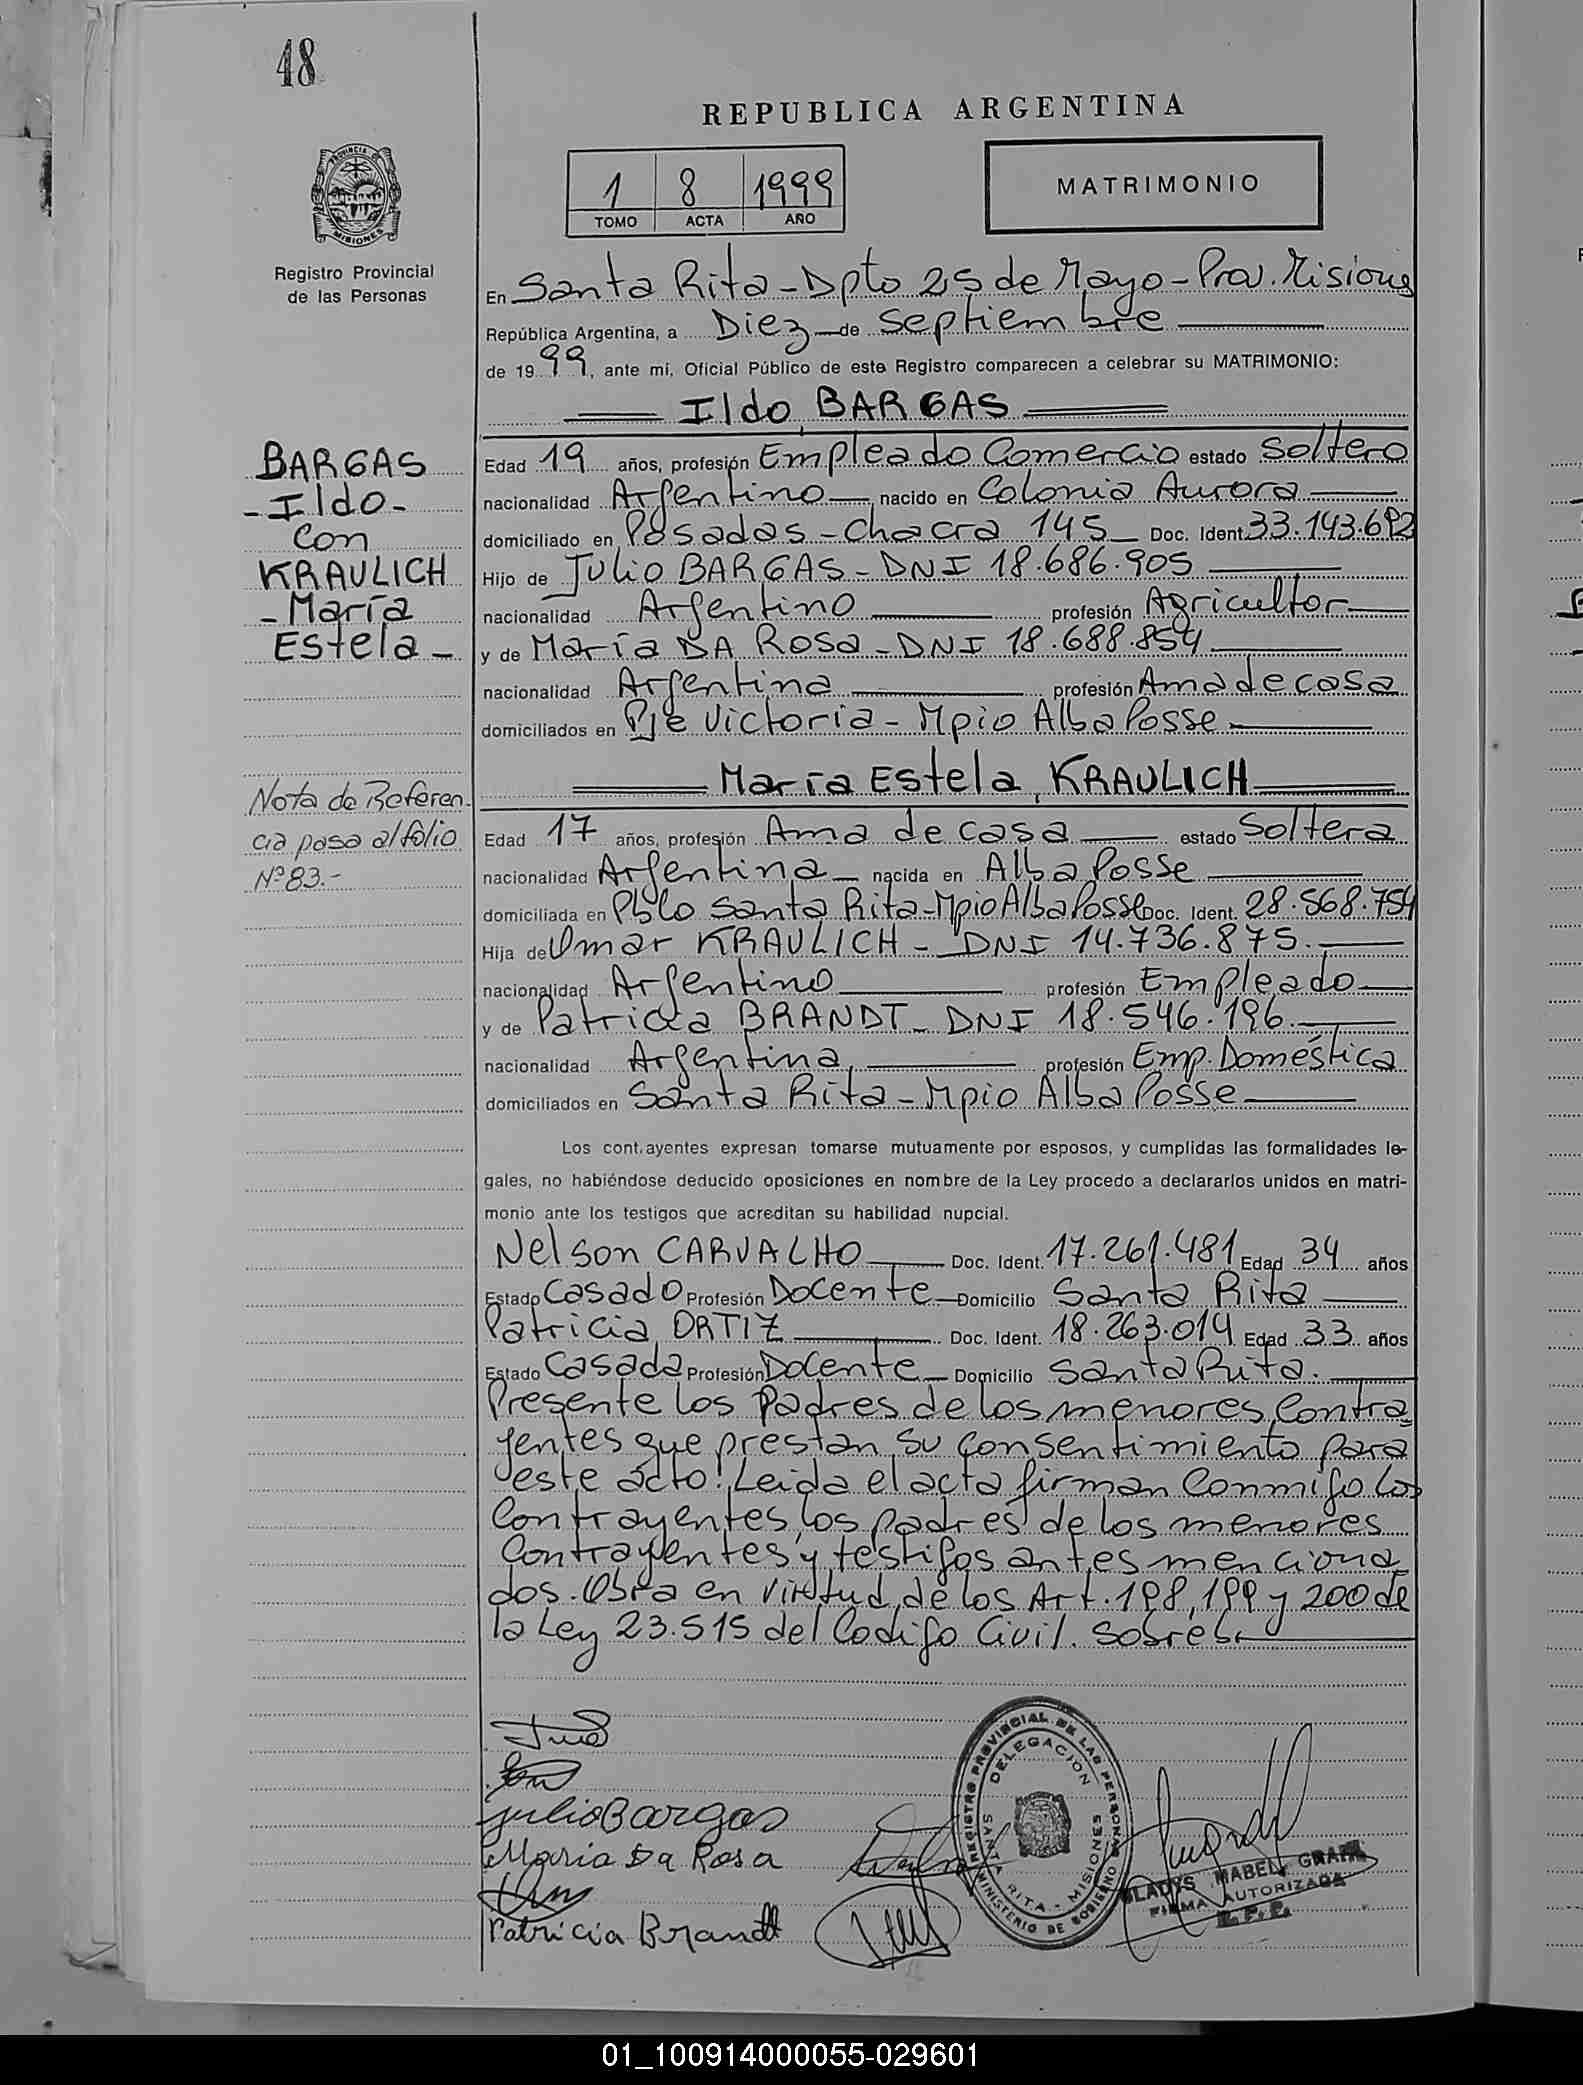 48
REPUBLICA ARGENTINA
1 8 1999
TOMO ACTA AÑO
MATRIMONIO
PROVINCIA DE
MISIONES
Registro Provincial
de las Personas
En Santa Rita - Dpto 25 de Mayo - Prov. Misiones
República Argentina, a Diez de Septiembre
de 1999, ante mi, Oficial Público de este Registro comparecen a celebrar su MATRIMONIO:
Ildo BARGAS
BARGAS
- Ildo -
Con
KRAULICH
- María
Estela -
Edad 19 años, profesión Empleado Comercio estado Soltero
nacionalidad Argentino nacido en Colonia Aurora
domiciliado en Posadas - Chacra 145 Doc. Ident. 33.143.692
Hijo de Julio BARGAS - DNI 18.686.905
nacionalidad Argentino profesión Agricultor
y de María DA ROSA - DNI 18.688.854
nacionalidad Argentina profesión Ama de casa
domiciliados en Pje Victoria - Mpio Alba Posse
María Estela, KRAULICH
Nota de Referen-
cia pasa al folio
Nº 83.-
Edad 17 años, profesión Ama de casa estado Soltera
nacionalidad Argentina nacida en Alba Posse
domiciliada en Pblo Santa Rita - Mpio Alba Posse Doc. Ident. 28.568.754
Hija de Omar KRAULICH - DNI 14.736.875.
nacionalidad Argentino profesión Empleado
y de Patricia BRANDT - DNI 18.546.196.
nacionalidad Argentina, profesión Emp. Doméstica
domiciliados en Santa Rita - Mpio Alba Posse
Los contrayentes expresan tomarse mutuamente por esposos, y cumplidas las formalidades le-
gales, no habiéndose deducido oposiciones en nombre de la Ley procedo a declararlos unidos en matri-
monio ante los testigos que acreditan su habilidad nupcial.
Nelson CARVALHO Doc. Ident. 17.261.481 Edad 34 años
Estado Casado Profesión Docente Domicilio Santa Rita
Patricia ORTIZ Doc. Ident. 18.263.014 Edad 33 años
Estado Casada Profesión Docente Domicilio Santa Rita.
Presente los Padres de los menores Contra-
yentes que prestan su consentimiento para
este acto! Leida el acta firman Conmigo los
Contrayentes, los padres de los menores
Contrayentes y testigos antes menciona
dos. Obra en virtud de los Art. 198, 199 y 200 de
la Ley 23.515 del Codigo Civil. Sobre
Julio Bargas
Maria Da Rosa
Patricia Brandt
REGISTRO PROVINCIAL DE LAS PERSONAS
DELEGACION
SANTA RITA - MISIONES
MINISTERIO DE GOBIERNO
GLADYS MABEL
FIRMA AUTORIZADA
R. P. P.
01_100914000055-029601